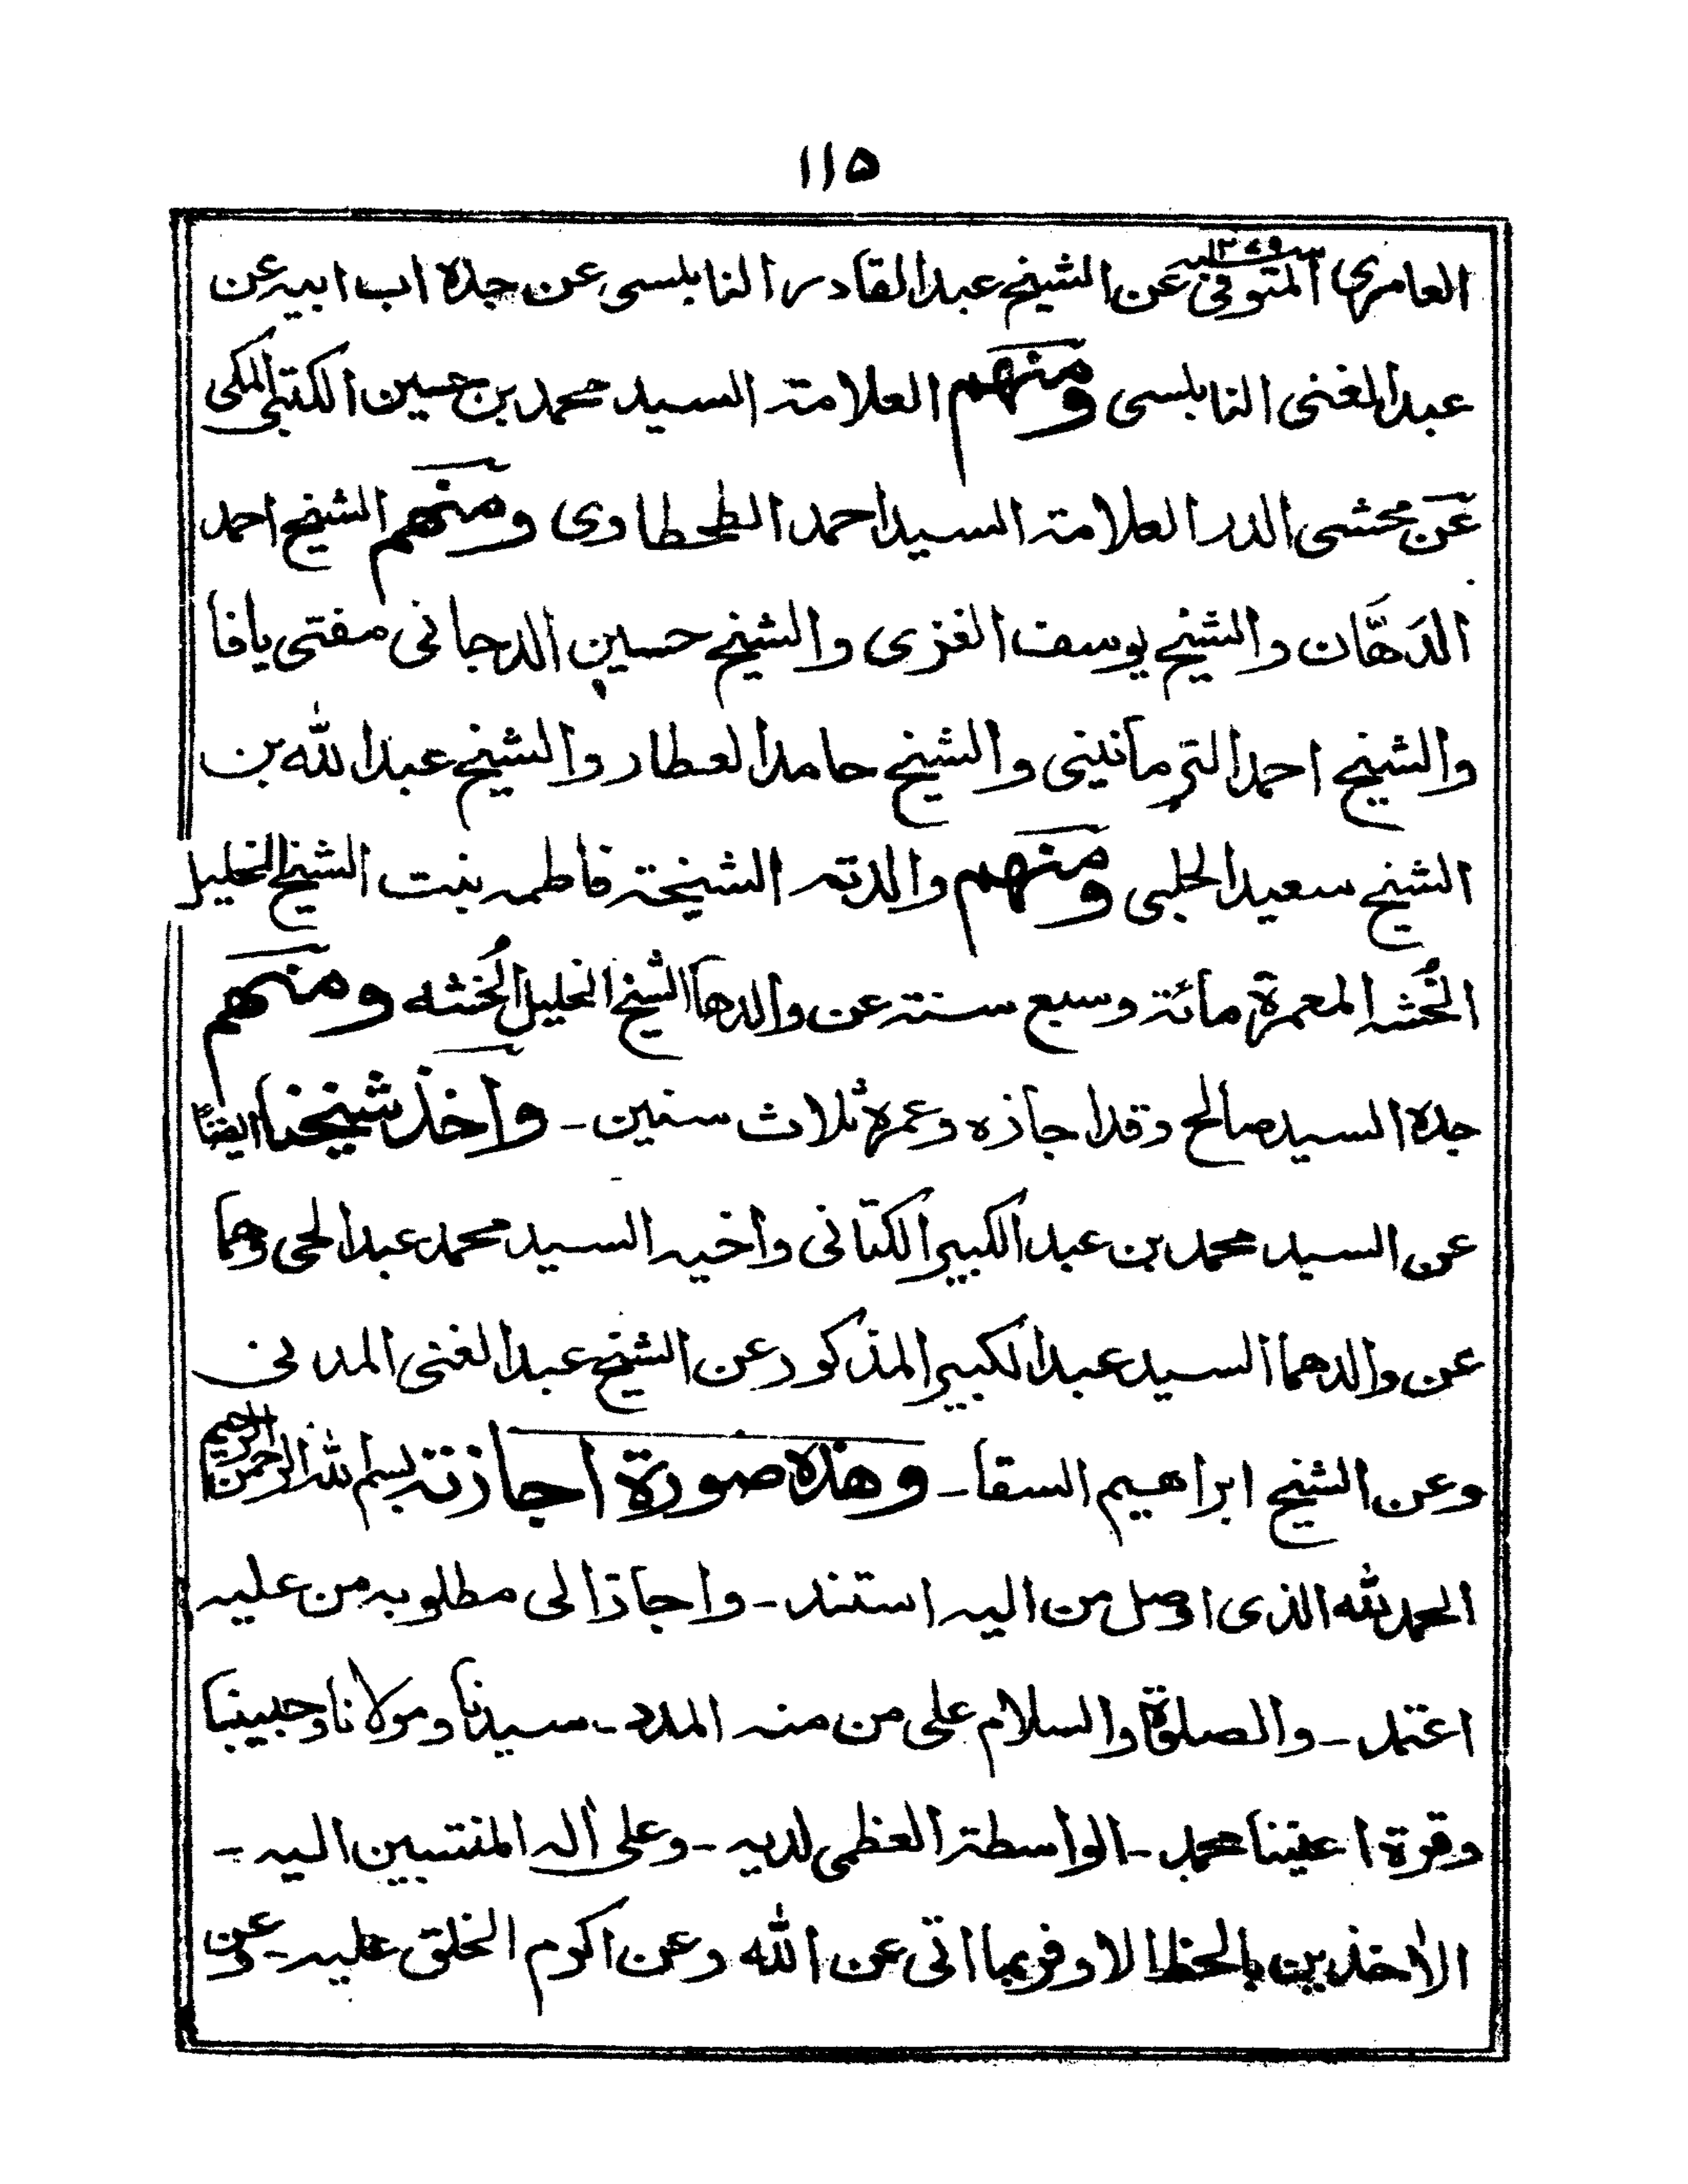 ١١٥
العامري المتوفى سنه ١٢٧٩ عن الشيخ عبد القادر النابلسى عن جده اب ابيه عن
عبد الغنى النابلسى ومنهم العلامة السيد محمد بن حسين الكتبى المكى
عن محشى الدر العلامة السيد احمد الطحطاوى ومنهم الشيخ احمد
الدَهَّان والشيخ يوسف الغزى والشيخ حسين الدجانى مفتى يافا
والشيخ احمد الترمانينى والشيخ حامد العطار والشيخ عبد الله بن
الشيخ سعيد الحلبى ومنهم والدته الشيخة فاطمه بنت الشيخ الخليل
الخُشه المعمرة مائة وسبع سنة عن والدها الشيخ الخليل الخُشه ومنهم
جده السيد صالح وقد اجازه وعمره ثلاث سنين - واخذ شيخنا ايضًا
عن السيد محمد بن عبد الكبير الكتانى واخيه السيد محمد عبد الحى وهما
عن والدهما السيد عبد الكبير المذكور عن الشيخ عبد الغنى المدنى
وعن الشيخ ابراهيم السقا - وهذه صورة اجازته بسم الله الرحمن الرحيم
الحمد لله الذى اوصل من اليه استند - واجاز الى مطلوبه من عليه
اعتمد - والصلوة والسلام على من منه المدد - سيدنا ومولانا وحبيبنا
وقرة اعيننا محمد - الواسطة العظمى لديه - وعلى أله المنتسبين اليه -
الأخذين بالحظ الاوفر بما اتى عن الله وعن اكرم الخلق عليه - وعن